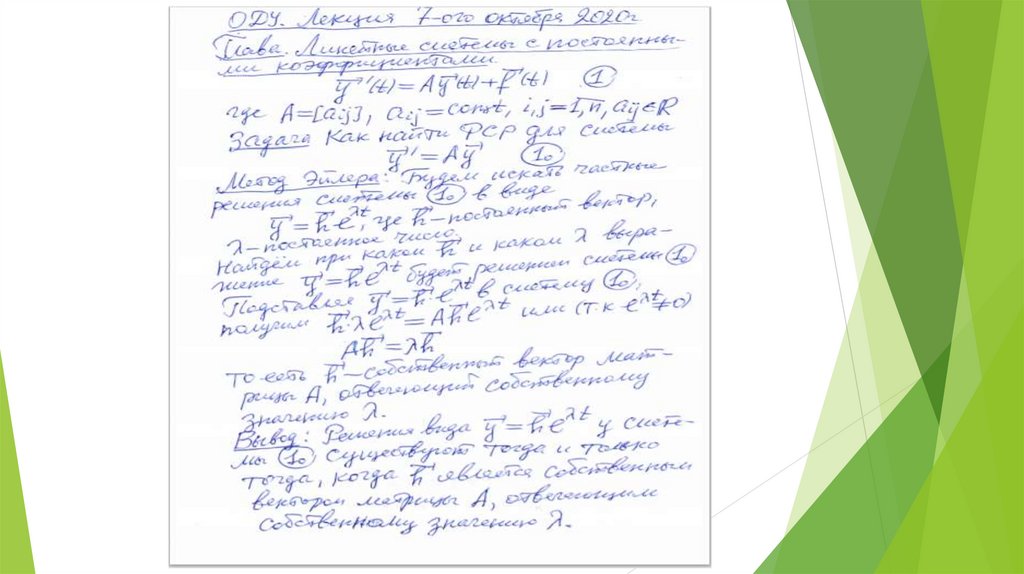 ОДУ. Лекция 7-ого октября 2020г
Глава. Линейные системы с постоянны-
ми коэффициентами.
y⃗'(t) = Ay⃗(t) + f⃗(t) ①
где A=[aij], aij = const, i,j=1,n, aij∈R
Задача Как найти ФСР для системы
y⃗' = Ay⃗ (1₀)
Метод Эйлера: Будем искать частные
решения системы (1₀) в виде
y⃗ = h⃗e^{λt}, где h⃗ – постоянный вектор,
λ – постоянное число.
Найдём при каком h⃗ и каком λ выра-
жение y⃗ = h⃗e^{λt} будет решением системы (1₀)
Подставляя y⃗ = h⃗·e^{λt} в систему (1₀),
получим h⃗·λe^{λt} = Ah⃗e^{λt} или (т.к e^{λt}≠0)
Ah⃗ = λh⃗
то есть h⃗ – собственный вектор мат-
рицы A, отвечающий собственному
значению λ.
Вывод: Решения вида y⃗ = h⃗e^{λt} у систе-
мы (1₀) существуют тогда и только
тогда, когда h⃗ является собственным
вектором матрицы A, отвечающим
собственному значению λ.